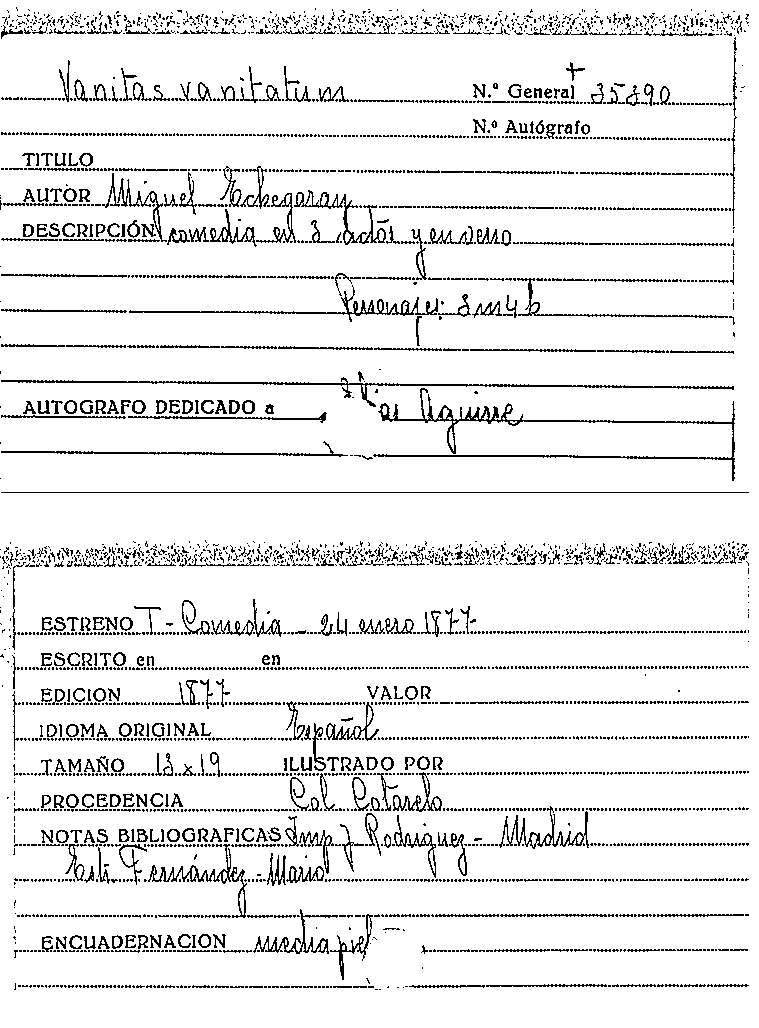 Vanitas vanitatum N.º General + 35890
N.º Autógrafo
TITULO
AUTOR Miguel Echegaray
DESCRIPCIÓN comedia en 3 actos y en verso
Personajes: 3 m 4 h
AUTOGRAFO DEDICADO a Aguirre
ESTRENO T - Comedia - 24 enero 1877
ESCRITO en en
EDICION 1877 VALOR
IDIOMA ORIGINAL Español
TAMAÑO 13 x 19 ILUSTRADO POR
PROCEDENCIA Col Cotarelo
NOTAS BIBLIOGRAFICAS Imp J Rodriguez - Madrid
Estr. Fernández - Mario
ENCUADERNACION media piel